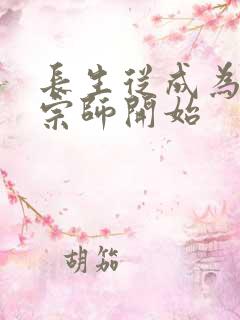 長生從成為
宗師開始
胡笳